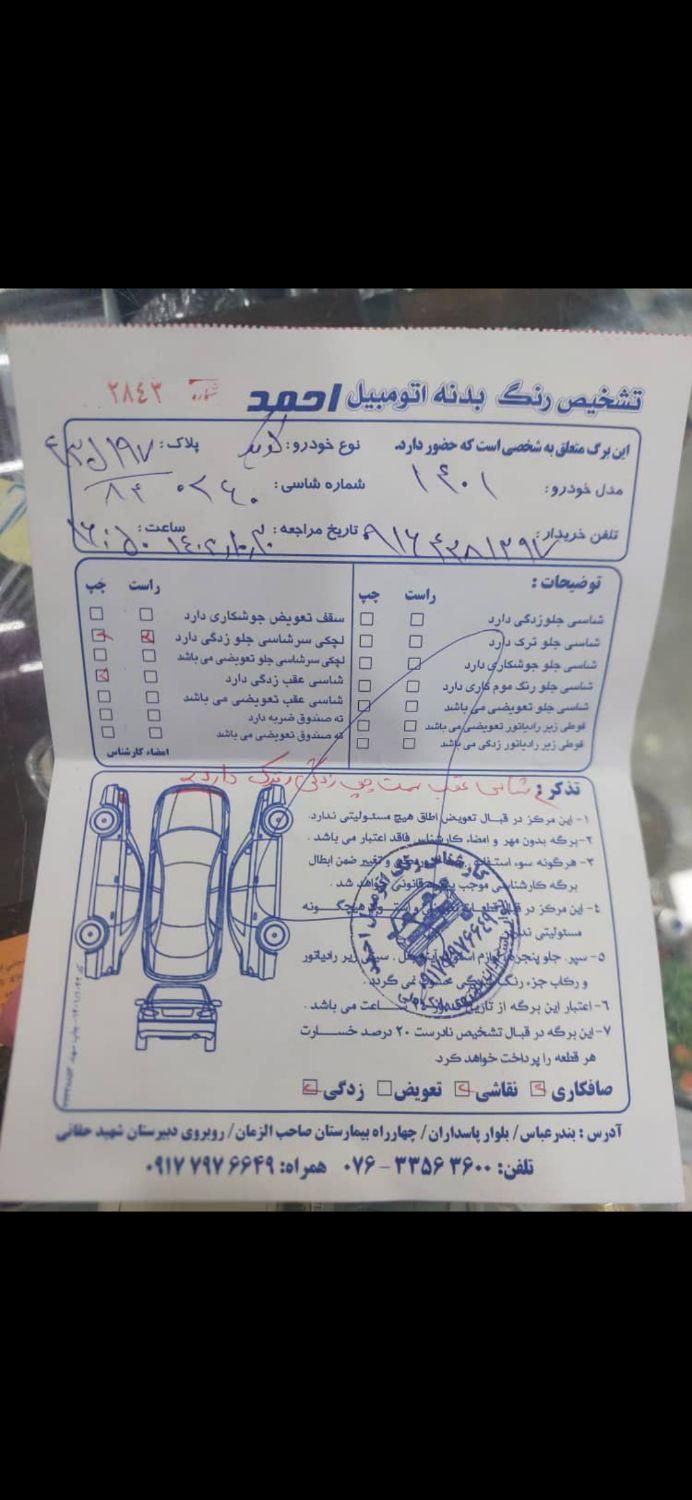 تشخیص رنگ بدنه اتومبیل احمد شماره ۲۸۴۳
این برگ متعلق به شخصی است که حضور دارد. نوع خودرو: کوییک پلاک:
مدل خودرو: ۱۴۰۱ شماره شاسی:
تلفن خریدار: تاریخ مراجعه: ساعت:
توضیحات:
راست چپ
شاسی جلوزدگی دارد
شاسی جلو ترک دارد
شاسی جلو جوشکاری دارد
شاسی جلو رنگ موم کاری دارد
شاسی جلو تعویضی می باشد
قوطی زیر رادیاتور تعویضی می باشد
قوطی زیر رادیاتور زدگی می باشد
راست چپ
سقف تعویض جوشکاری دارد
لچکی سرشاسی جلو زدگی دارد
لچکی سرشاسی جلو تعویضی می باشد
شاسی عقب زدگی دارد
شاسی عقب تعویضی می باشد
ته صندوق ضربه دارد
ته صندوق تعویضی می باشد
امضاء کارشناس
تذکر: شاسی عقب سمت چپ زدگی و ترک دارد
۱- این مرکز در قبال تعویض اطاق هیچ مسئولیتی ندارد.
۲- برگه بدون مهر و امضاء کارشناس فاقد اعتبار می باشد.
۳- هرگونه سوء استفاده و تغییر ضمن ابطال
برگه کارشناسی موجب پیگرد قانونی خواهد شد.
۴- این مرکز در قبال هیچگونه
مسئولیتی ندارد
۵- سپر، جلو پنجره، لوازم سینی زیر رادیاتور
و رکاب جزء رنگ نمی گردد.
۶- اعتبار این برگه از تاریخ ساعت می باشد.
۷- این برگه در قبال تشخیص نادرست ۲۰ درصد خسارت
هر قطعه را پرداخت خواهد کرد.
صافکاری نقاشی تعویض زدگی
کارشناسی رنگ اتومبیل احمد
۰۹۱۷۷۹۷۶۶۴۹
آدرس: بندرعباس/ بلوار پاسداران/ چهارراه بیمارستان صاحب الزمان/ روبروی دبیرستان شهید حقانی
تلفن: ۳۶۰۰ ۳۳۵۶ - ۰۷۶ همراه: ۶۶۴۹ ۷۹۷ ۰۹۱۷